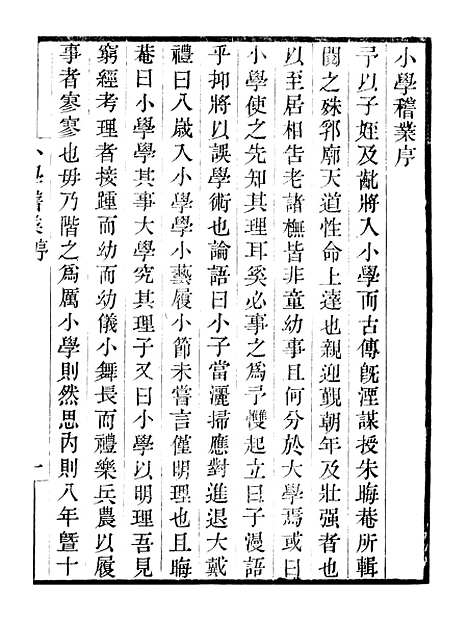 小學稽業序
予以子姪及齔將入小學而古傳既湮謀授朱晦菴所輯
閱之殊郛廓天道性命上達也親迎覲朝年及壯强者也
以至居相告老諸憮皆非童幼事且何分於大學焉或曰
小學使之先知其理耳奚必事之為予戄起立曰子漫語
乎抑將以誤學術也論語曰小子當灑掃應對進退大戴
禮曰八歲入小學學小藝履小節未嘗言僅明理也且晦
菴曰小學學其事大學究其理子又曰小學以明理吾見
窮經考理者接踵而幼而幼儀小舞長而禮樂兵農以履
事者寥寥也毋乃階之為厲小學則然思内則八年暨十
小學稽業序
一